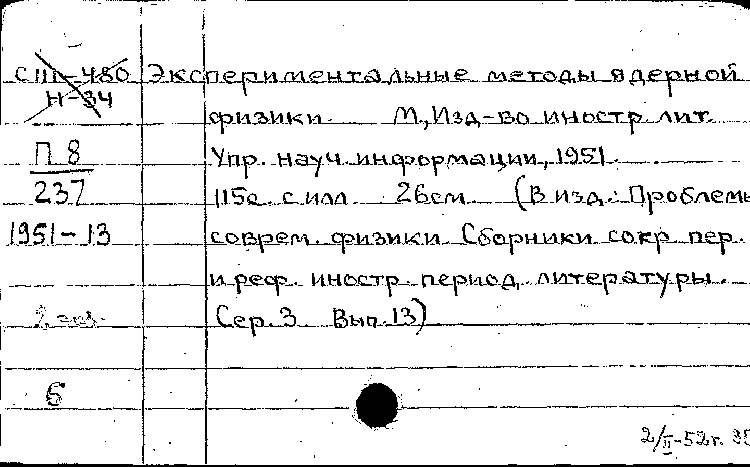 СIII-480 Экспериментальные методы ядерной
Н-34
физики М., Изд-во иностр. лит.
П 8 Упр. науч. информации, 1951.
237 115с. с илл. 26см. (В изд.: Проблемы
1951-13 соврем. физики. Сборники сокр. пер.
и реф. иностр. период. литературы.
2 экз. Сер. 3. Вып. 13)
6
2/II-52г.